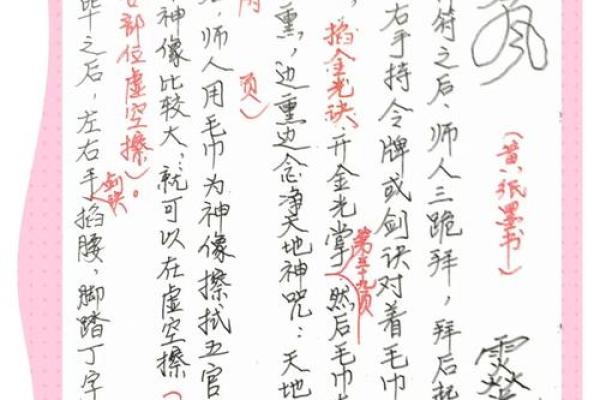 （黄纸墨书）
符之后、师人三跪拜，拜后起
右手持令牌或剑诀对着毛巾
掐金光诀，开金光掌，然后毛巾
第五十九页
熏，边熏边念净天地神咒：天地
页）
师人用毛巾为神像擦拭五官
神像比较大，就可以在虚空擦（
部位虚空擦）。
毕之后，左右手剑诀掐腰，脚踏丁字